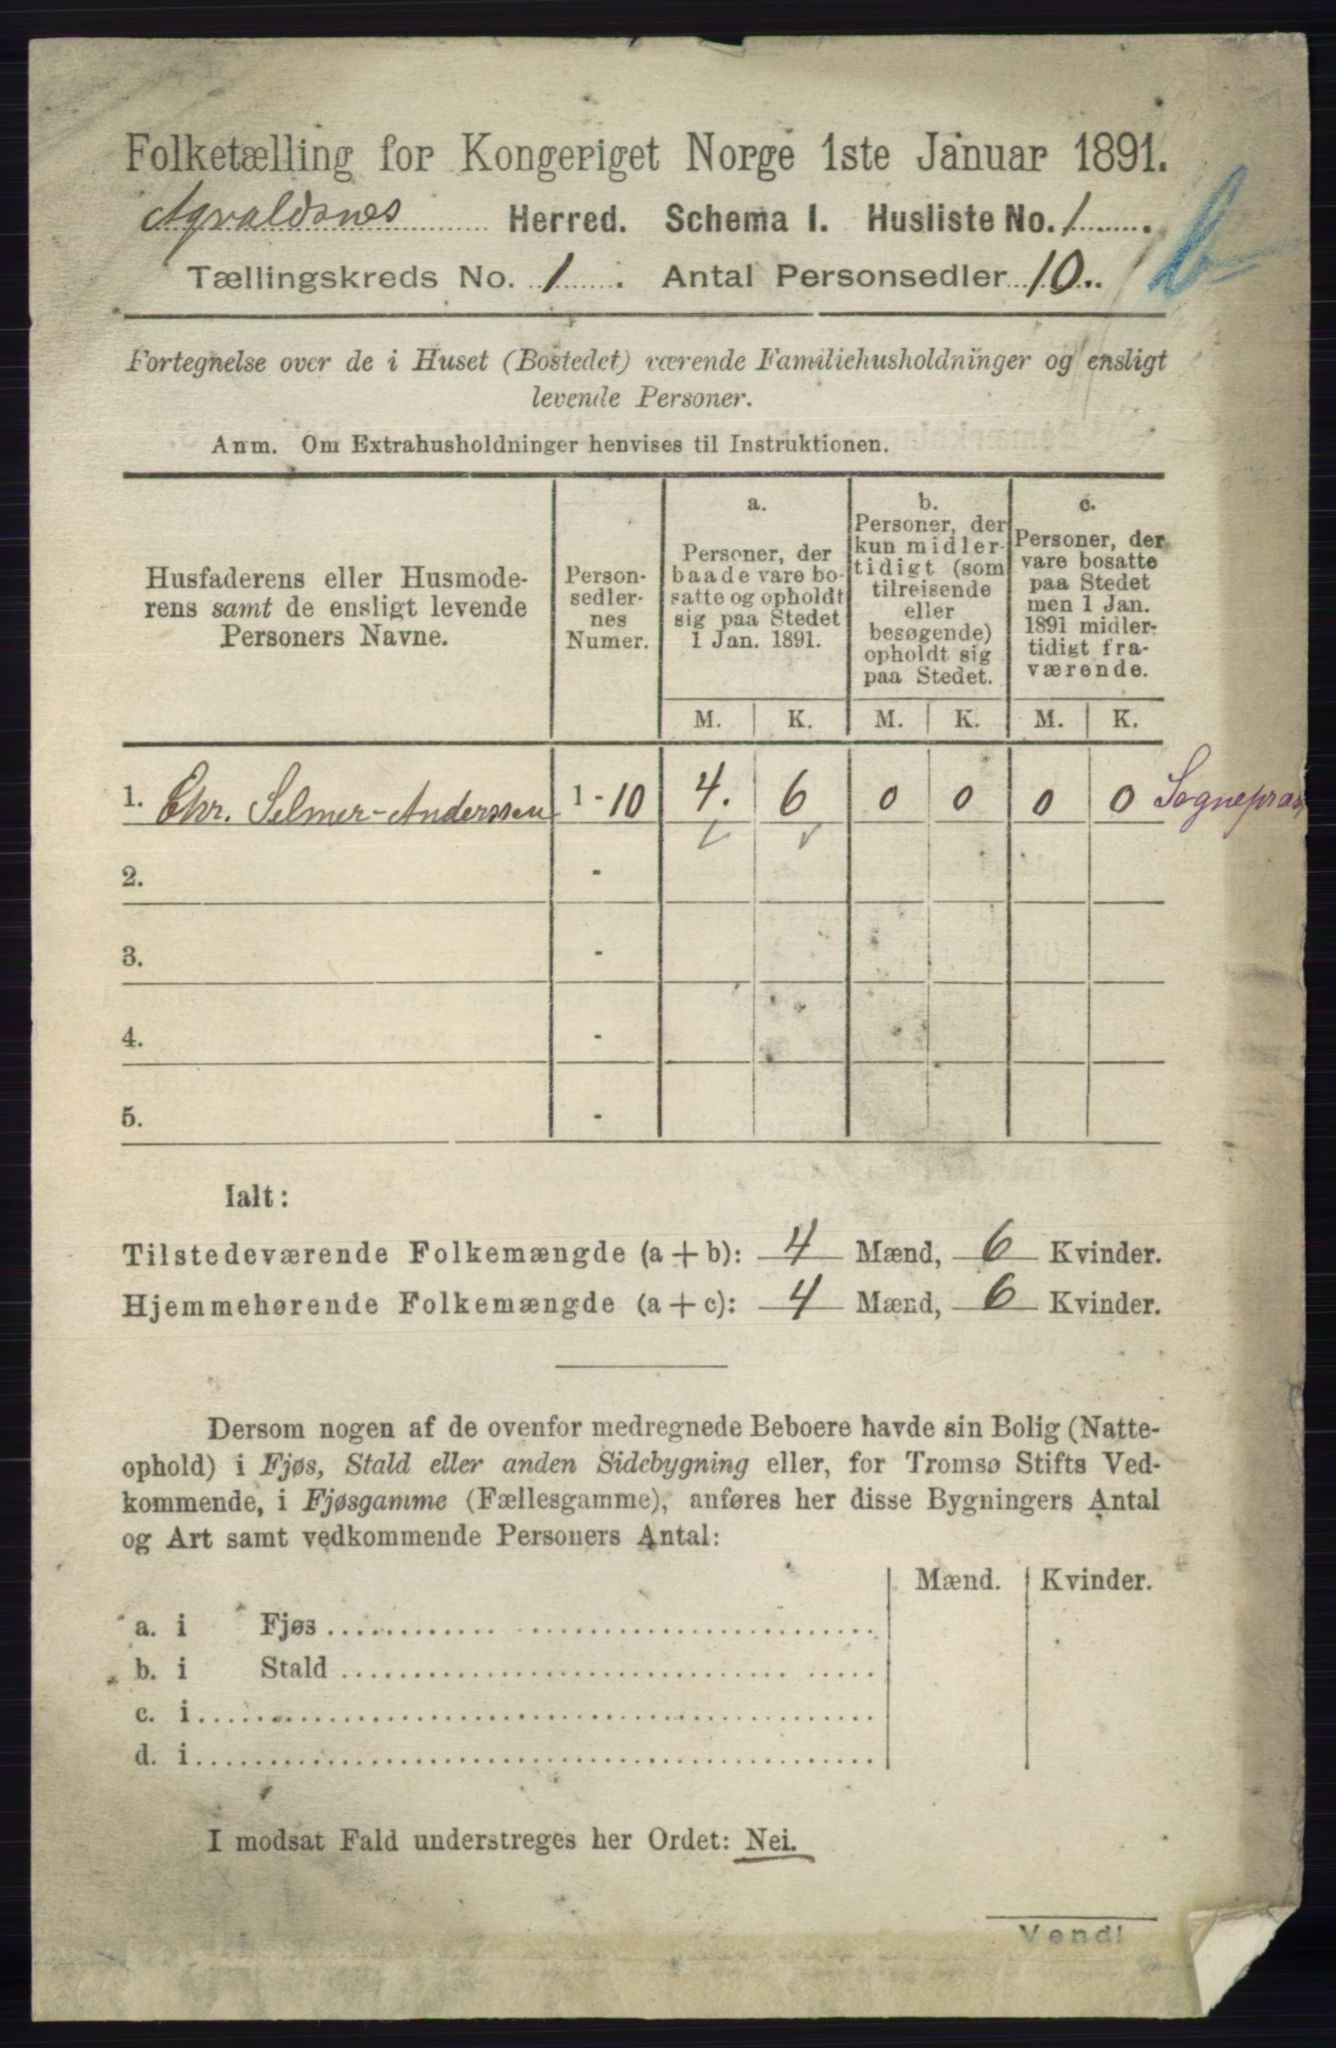 Folketælling for Kongeriget Norge 1ste Januar 1891.
Agvaldsnes Herred. Schema I. Husliste No. 1
Tællingskreds No. 1. Antal Personsedler 10. b
Fortegnelse over de i Huset (Bostedet) værende Familiehusholdninger og ensligt
levende Personer.
Anm. Om Extrahusholdninger henvises til Instruktionen.
Husfaderens eller Husmode-
rens samt de ensligt levende
Personers Navne.
Person-
sedler-
nes
Numer.
a.
Personer, der
baade vare bo-
satte og opholdt
sig paa Stedet
1 Jan. 1891.
b.
Personer, der
kun midler-
tidigt (som
tilreisende
eller
besøgende)
opholdt sig
paa Stedet.
c.
Personer, der
vare bosatte
paa Stedet
men 1 Jan.
1891 midler-
tidigt fra-
værende.
M. K. M. K. M. K.
1. Chr. Selmer-Anderssen 1 - 10 4. 6 0 0 0 0 Sognepræst
2. -
3. -
4. -
5. -
Ialt:
Tilstedeværende Folkemængde (a + b): 4 Mænd, 6 Kvinder.
Hjemmehørende Folkemængde (a + c): 4 Mænd, 6 Kvinder.
Dersom nogen af de ovenfor medregnede Beboere havde sin Bolig (Natte-
ophold) i Fjøs, Stald eller anden Sidebygning eller, for Tromsø Stifts Ved-
kommende, i Fjøsgamme (Fællesgamme), anføres her disse Bygningers Antal
og Art samt vedkommende Personers Antal:
Mænd. Kvinder.
a. i Fjøs
b. i Stald
c. i
d. i
I modsat Fald understreges her Ordet: Nei.
Vend!